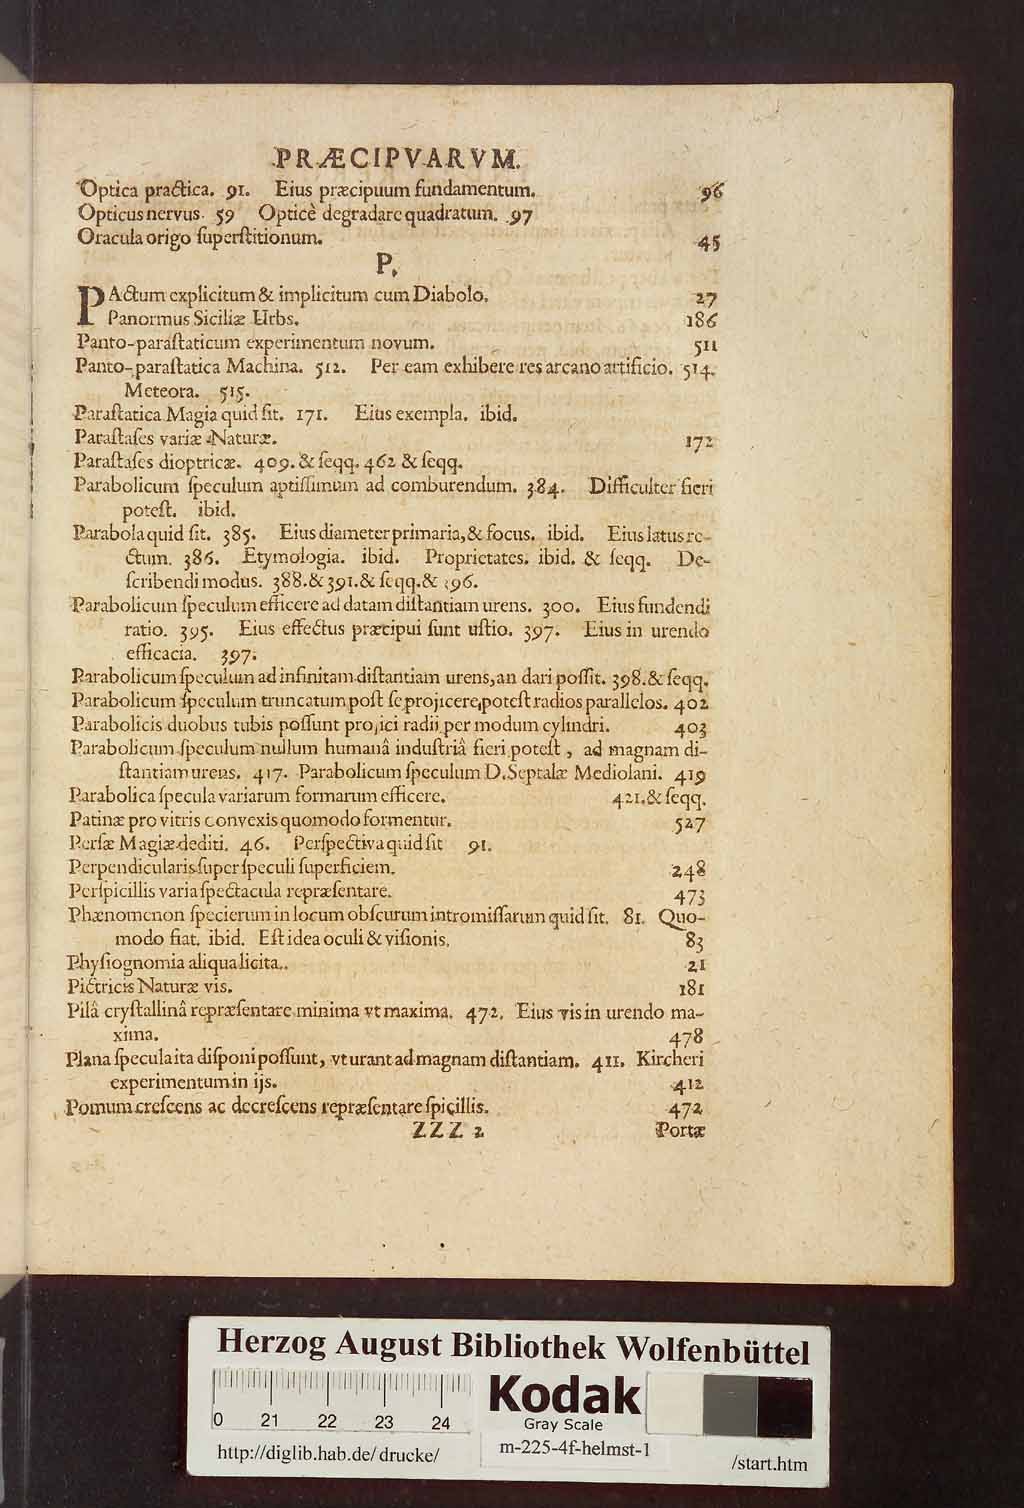 PRÆCIPVARVM.
Optica practica. 91. Eius præcipuum fundamentum. 96
Opticus nervus. 59 Opticè degradare quadratum. 97
Oracula origo ſuperſtitionum. 45
P.
PActum explicitum & implicitum cum Diabolo. 27
Panormus Siciliæ Urbs. 186
Panto-paraſtaticum experimentum novum. 511
Panto-paraſtatica Machina. 512. Per eam exhibere res arcano artificio. 514.
Meteora. 515.
Paraſtatica Magia quid ſit. 171. Eius exempla. ibid.
Paraſtaſes variæ Naturæ. 172
Paraſtaſes dioptricæ. 409. & ſeqq. 462 & ſeqq.
Parabolicum ſpeculum aptiſſimum ad comburendum. 384. Difficulter fieri
poteſt. ibid.
Parabola quid ſit. 385. Eius diameter primaria, & focus. ibid. Eius latus re-
ctum. 386. Etymologia. ibid. Proprietates. ibid. & ſeqq. De-
ſcribendi modus. 388. & 391. & ſeqq. & 396.
Parabolicum ſpeculum efficere ad datam diſtantiam urens. 300. Eius fundendi
ratio. 395. Eius effectus præcipui ſunt uſtio. 397. Eius in urendo
efficacia. 397.
Parabolicum ſpeculum ad infinitam diſtantiam urens, an dari poſſit. 398. & ſeqq.
Parabolicum ſpeculum truncatum poſt ſe projicere poteſt radios parallelos. 402
Parabolicis duobus tubis poſſunt projici radii per modum cylindri. 403
Parabolicum ſpeculum nullum humanâ induſtriâ fieri poteſt, ad magnam di-
ſtantiam urens. 417. Parabolicum ſpeculum D. Septalæ Mediolani. 419
Parabolica ſpecula variarum formarum efficere. 421. & ſeqq.
Patinæ pro vitris convexis quomodo formentur. 527
Perſæ Magiæ dediti. 46. Perſpectiva quid ſit 91.
Perpendicularis ſuper ſpeculi ſuperficiem. 248
Perſpicillis varia ſpectacula repræſentare. 473
Phænomenon ſpecierum in locum obſcurum intromiſſarum quid ſit. 81. Quo-
modo fiat. ibid. Eſt idea oculi & viſionis. 83
Phyſiognomia aliqua licita. 21
Pictricis Naturæ vis. 181
Pilâ cryſtallinâ repræſentare minima vt maxima. 472. Eius vis in urendo ma-
xima. 478
Plana ſpecula ita diſponi poſſunt, vt urant ad magnam diſtantiam. 411. Kircheri
experimentum in ijs. 412
Pomum creſcens ac decreſcens repræſentare ſpicillis. 472
ZZZ 2 Portæ
Herzog August Bibliothek Wolfenbüttel
0 21 22 23 24
Kodak
Gray Scale
http://diglib.hab.de/drucke/ m-225-4f-helmst-1 /start.htm